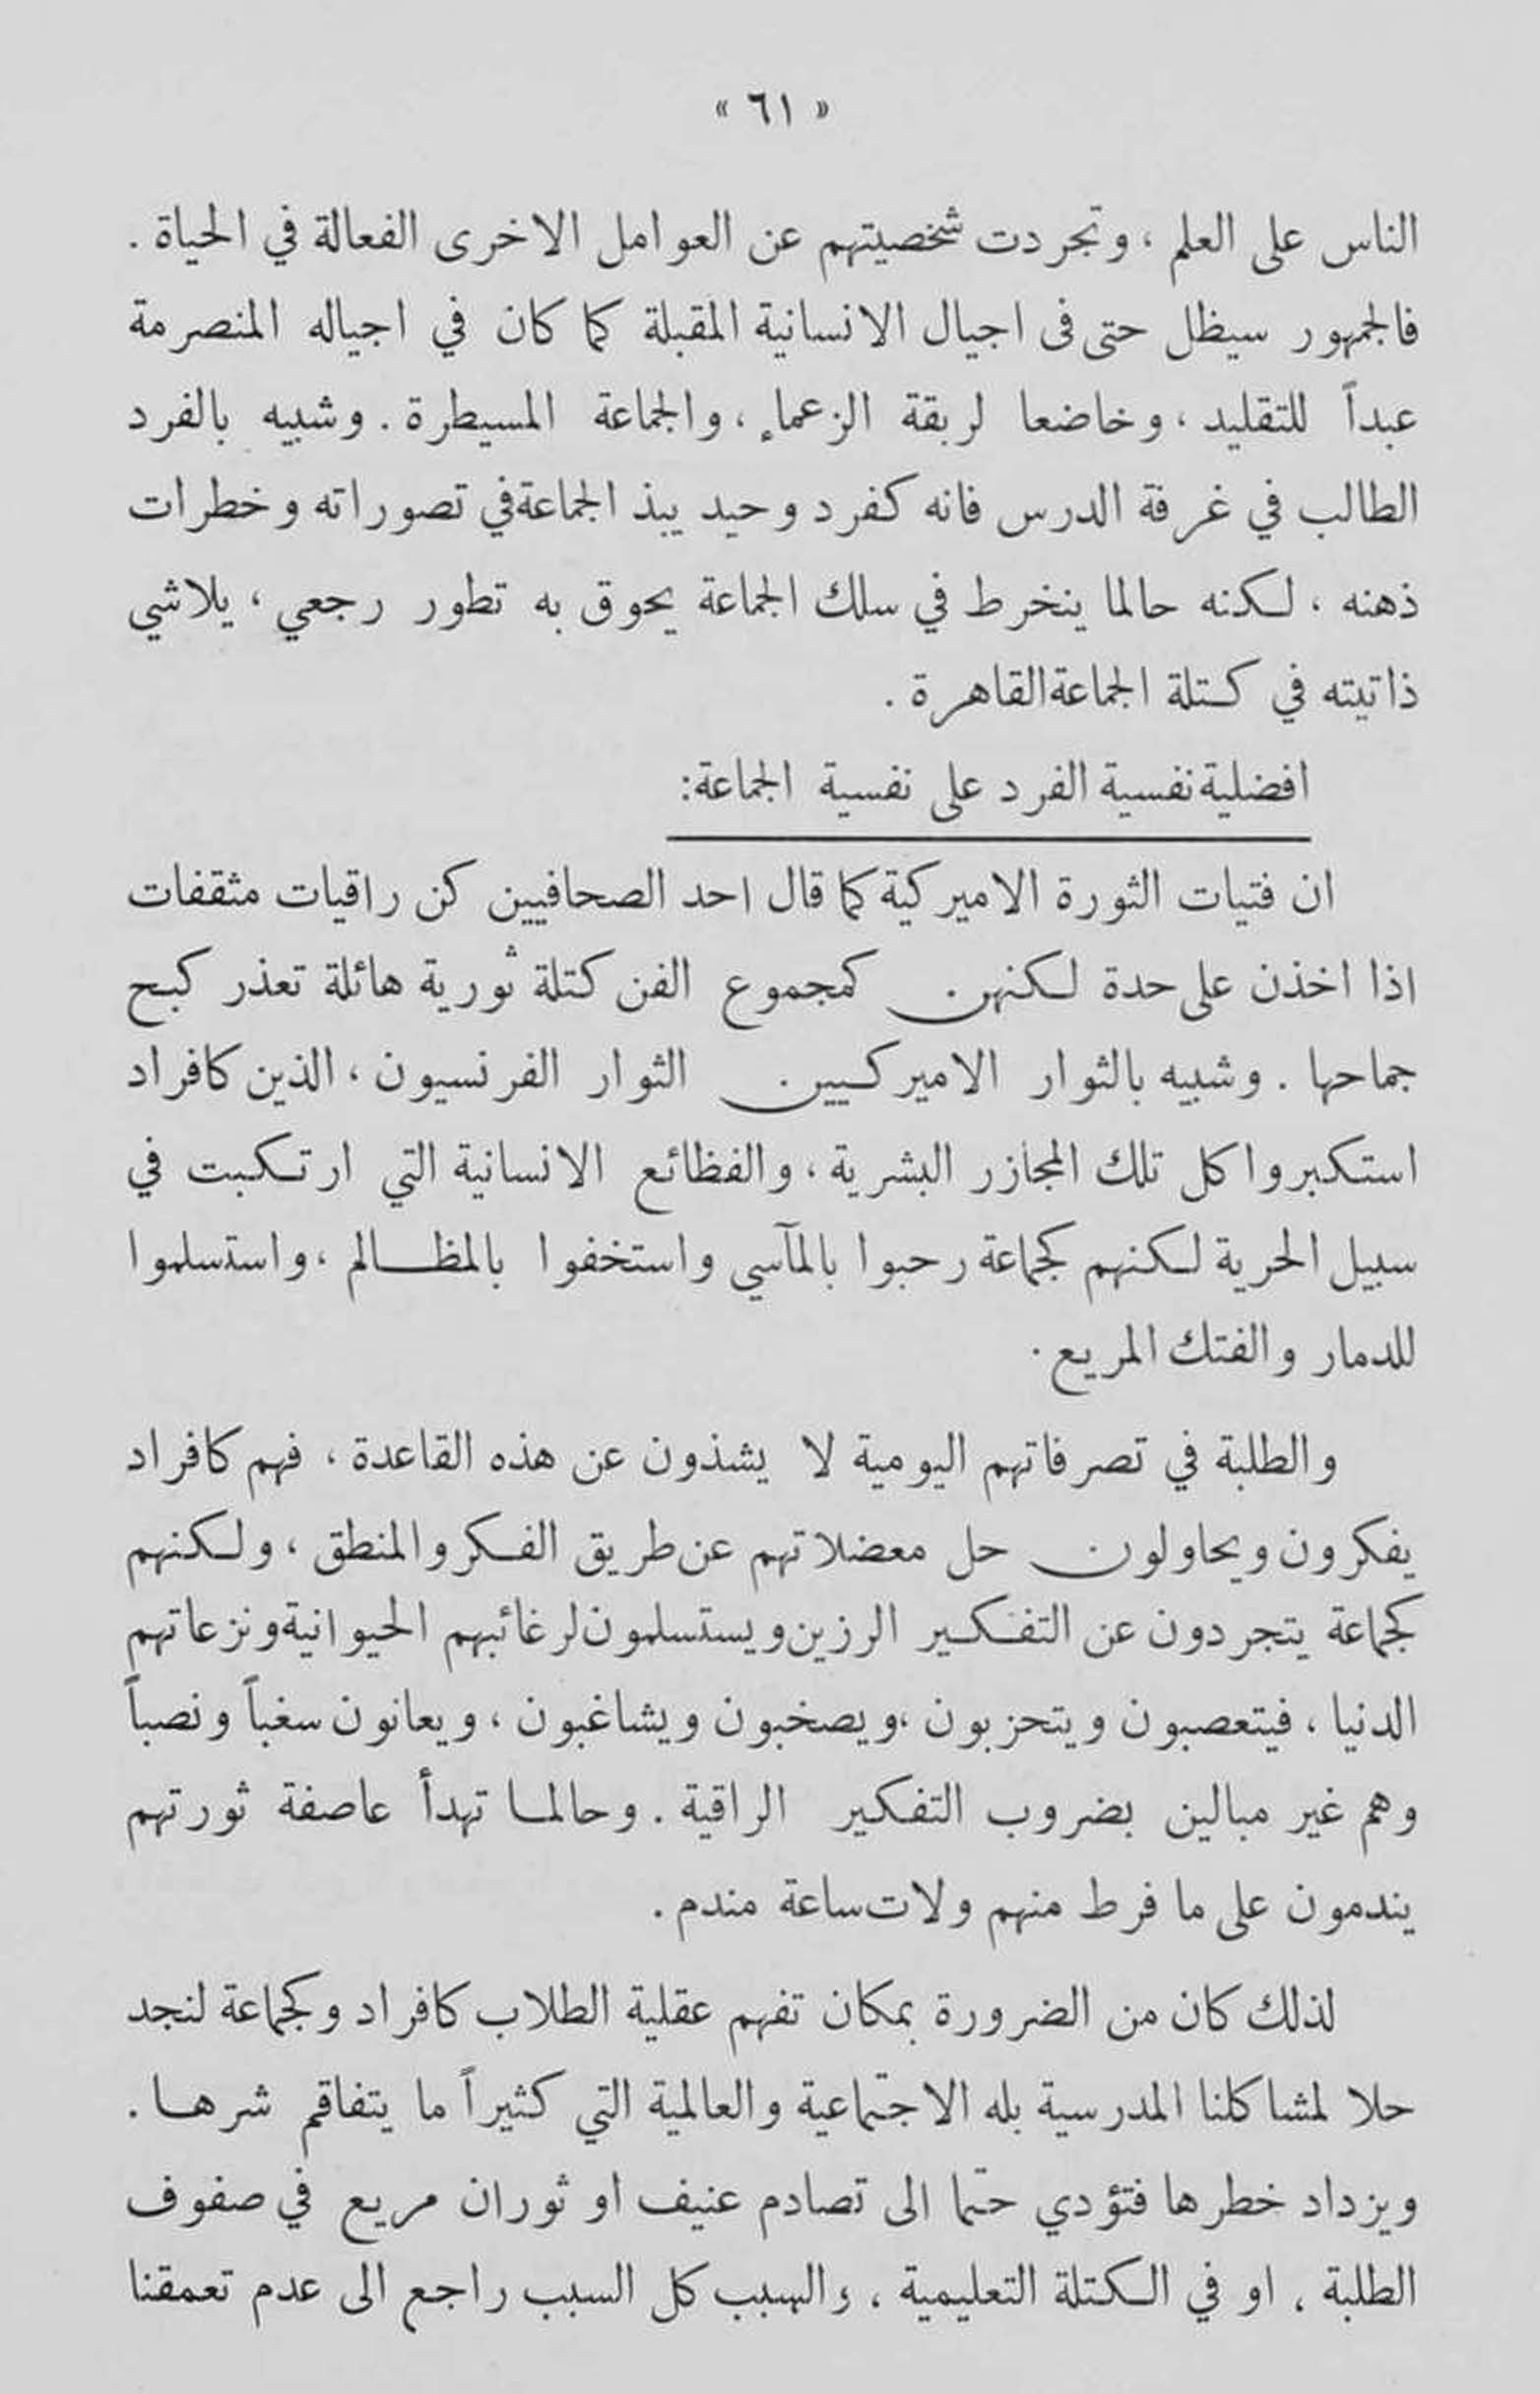 « ٦١ »
الناس على العلم ، وتجردت شخصيتهم عن العوامل الاخرى الفعالة في الحياة .
فالجمهور سيظل حتى فى اجيال الانسانية المقبلة كما كان في اجياله المنصرمة
عبداً للتقليد ، وخاضعا لربقة الزعماء ، والجماعة المسيطرة . وشبيه بالفرد
الطالب في غرفة الدرس فانه كفرد وحيد يبذ الجماعة في تصوراته وخطرات
ذهنه ، لكنه حالما ينخرط في سلك الجماعة يحوق به تطور رجعي ، يلاشي
ذاتيته في كتلة الجماعة القاهرة .
افضلية نفسية الفرد على نفسية الجماعة:
ان فتيات الثورة الاميركية كما قال احد الصحافيين كن راقيات مثقفات
اذا اخذن على حدة لكنهن كمجموع الفن كتلة ثورية هائلة تعذر كبح
جماحها . وشبيه بالثوار الاميركيين الثوار الفرنسيون ، الذين كافراد
استكبروا كل تلك المجازر البشرية ، والفظائع الانسانية التي ارتكبت في
سبيل الحرية لكنهم كجماعة رحبوا بالمآسي واستخفوا بالمظالم ، واستسلموا
للدمار والفتك المريع .
والطلبة في تصرفاتهم اليومية لا يشذون عن هذه القاعدة ، فهم كافراد
يفكرون ويحاولون حل معضلاتهم عن طريق الفكر والمنطق ، ولكنهم
كجماعة يتجردون عن التفكير الرزين ويستسلمون لرغائبهم الحيوانية ونزعاتهم
الدنيا ، فيتعصبون ويتحزبون ، ويصخبون ويشاغبون ، ويعانون سغباً ونصباً
وهم غير مبالين بضروب التفكير الراقية . وحالما تهدأ عاصفة ثورتهم
يندمون على ما فرط منهم ولات ساعة مندم .
لذلك كان من الضرورة بمكان تفهم عقلية الطلاب كافراد وكجماعة لنجد
حلا لمشاكلنا المدرسية بله الاجتماعية والعالمية التي كثيراً ما يتفاقم شرها .
ويزداد خطرها فتؤدي حتما الى تصادم عنيف او ثوران مريع في صفوف
الطلبة ، او في الكتلة التعليمية ، والسبب كل السبب راجع الى عدم تعمقنا